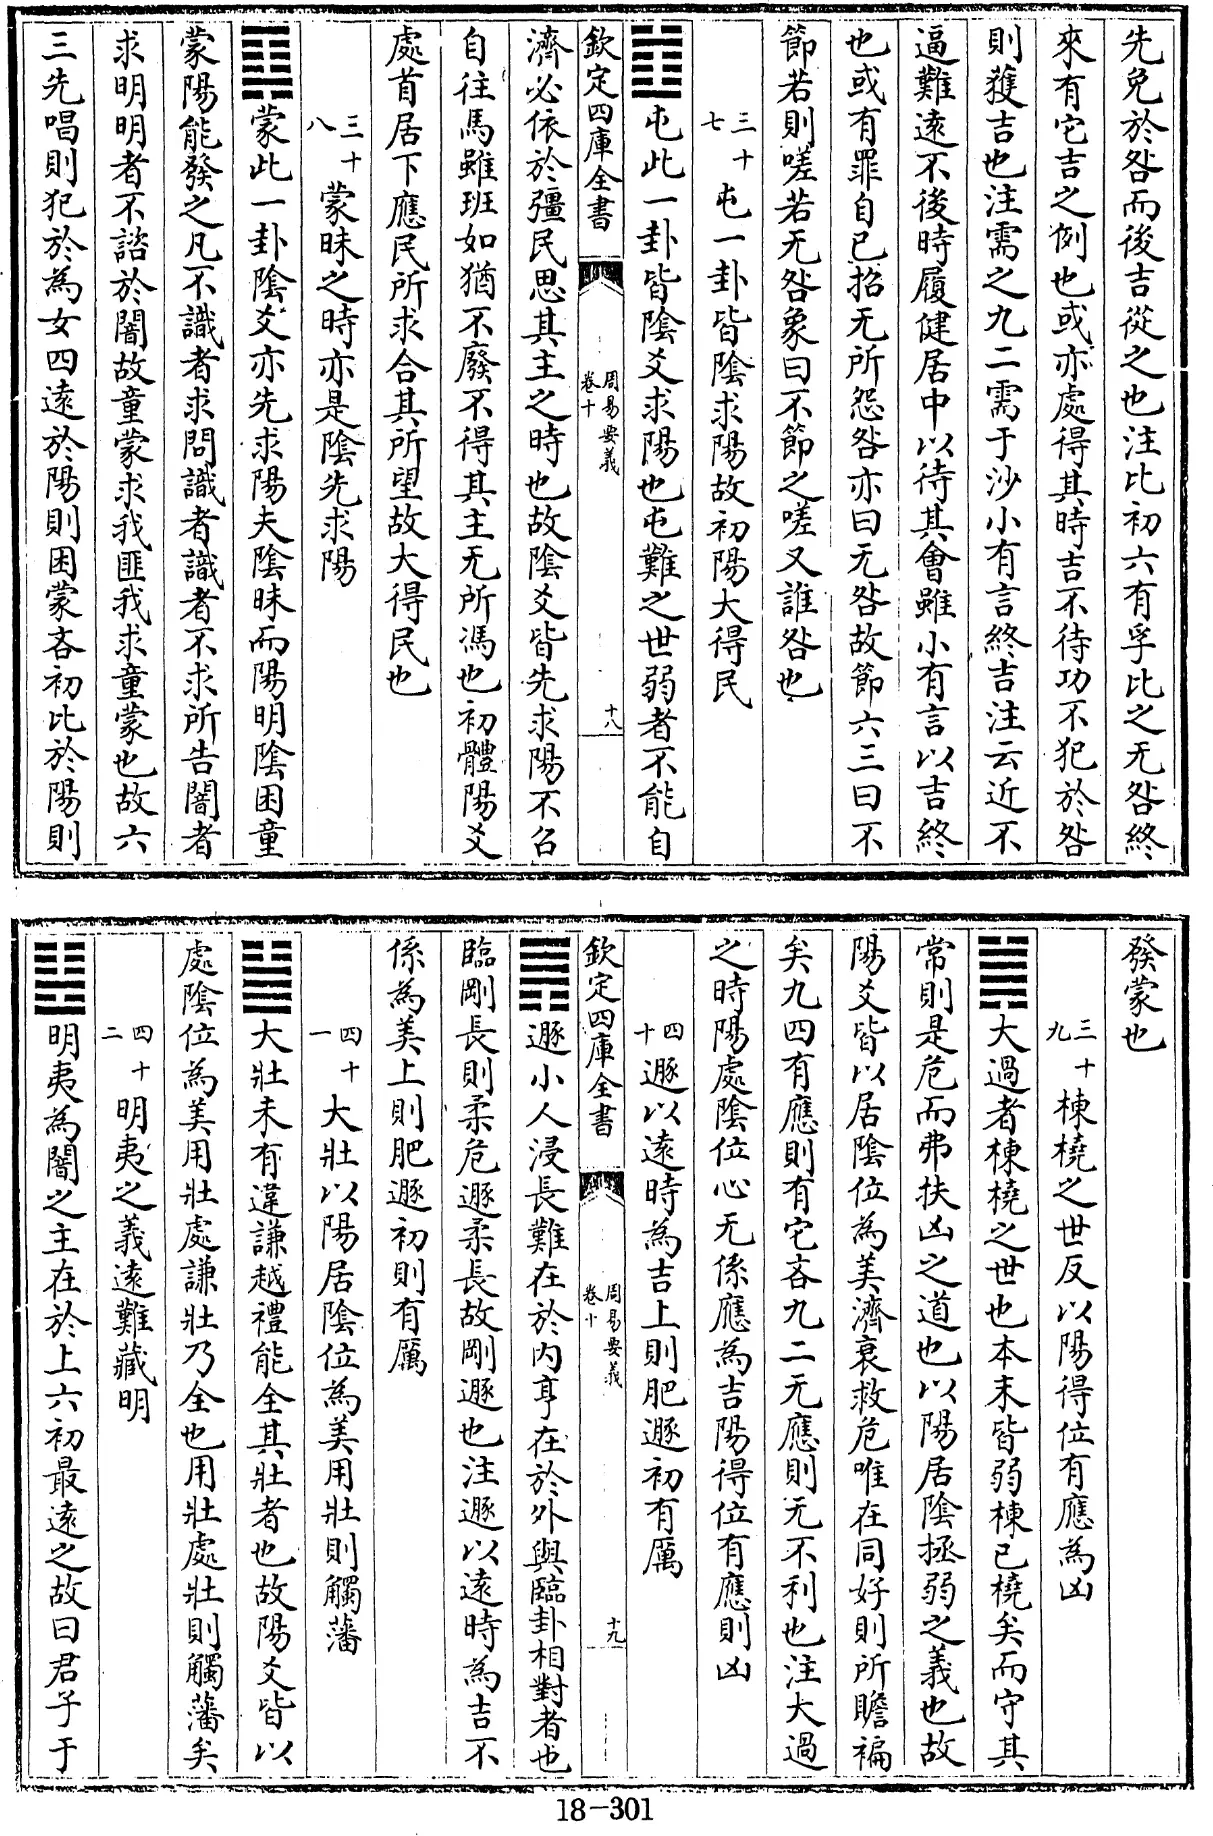 先免於咎而後吉從之也注比初六有孚比之无咎終
來有它吉之例也或亦處得其時吉不待功不犯於咎
則獲吉也注需之九二需于沙小有言終吉注云近不
逼難遠不後時履健居中以待其會雖小有言以吉終
也或有罪自已招无所怨咎亦曰无咎故節六三曰不
節若則嗟若无咎象曰不節之嗟又誰咎也
三十七 屯一卦皆陰求陽故初陽大得民
䷂屯此一卦皆陰爻求陽也屯難之世弱者不能自
欽定四庫全書 周易要義 卷十 十八
濟必依於彊民思其主之時也故陰爻皆先求陽不召
自往馬雖班如猶不廢不得其主无所馮也初體陽爻
處首居下應民所求合其所望故大得民也
三十八 蒙昧之時亦是陰先求陽
䷃蒙此一卦陰爻亦先求陽夫陰昧而陽明陰困童
蒙陽能發之凡不識者求問識者識者不求所告闇者
求明明者不諮於闇故童蒙求我匪我求童蒙也故六
三先唱則犯於為女四遠於陽則困蒙吝初比於陽則
發蒙也
三十九 棟橈之世反以陽得位有應為凶
䷛大過者棟橈之世也本末皆弱棟已橈矣而守其
常則是危而弗扶凶之道也以陽居陰拯弱之義也故
陽爻皆以居陰位為美濟衰救危唯在同好則所贍褊
矣九四有應則有它吝九二无應則无不利也注大過
之時陽處陰位心无係應為吉陽得位有應則凶
四十 遯以遠時為吉上則肥遯初有厲
欽定四庫全書 周易要義 卷十 十九
䷠遯小人浸長難在於内亨在於外與臨卦相對者也
臨剛長則柔危遯柔長故剛遯也注遯以遠時為吉不
係為美上則肥遯初則有厲
四十一 大壯以陽居陰位為美用壯則觸藩
䷡大壯未有違謙越禮能全其壯者也故陽爻皆以
處陰位為美用壯處謙壯乃全也用壯處壯則觸藩矣
四十二 明夷之義遠難藏明
䷣明夷為闇之主在於上六初最遠之故曰君子于
18-301